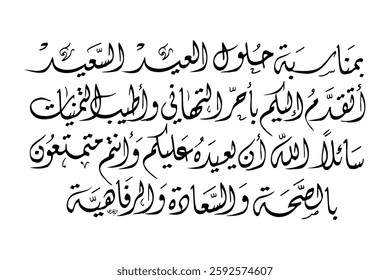 بمناسبة حلول العيد السعيد
أتقدم إليكم بأحر التهاني وأطيب التمنيات
سائلاً الله أن يعيده عليكم وأنتم متمتعون
بالصحة والسعادة والرفاهية
shutterstock.com · 2592574607